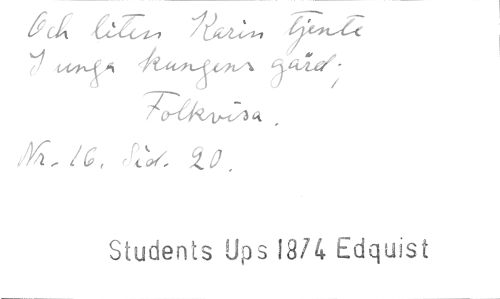 Och liten Karin tjente
I unga kungens gård;
Folkvisa.
Nr. 16. Sid. 20.
Students Ups 1874 Edquist